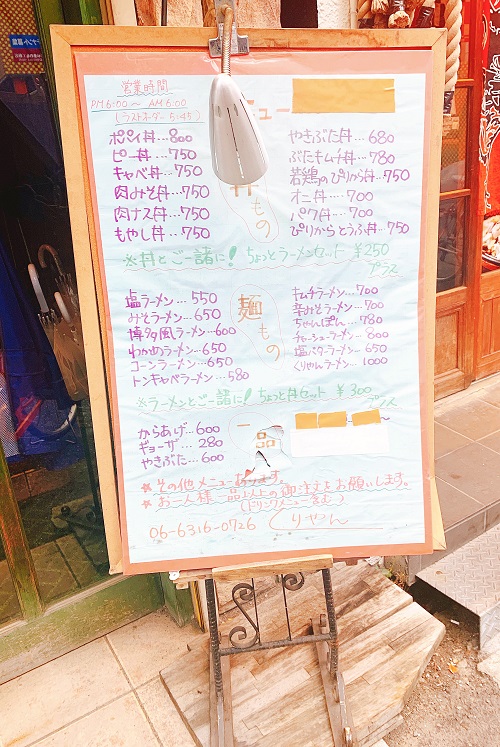 営業時間
PM6:00〜AM6:00
(ラストオーダー5:45)
ニュー
丼もの
ポパイ丼…800
ピー丼…750
キャベ丼…750
肉みそ丼…750
肉ナス丼…750
もやし丼…750
やきぶた丼…680
ぶたキムチ丼…780
若鶏のぴりから丼…750
オニ丼…700
パワ丼…700
ぴりからとうふ丼…750
※丼とご一諸に!ちょっとラーメンセット ¥250
プラス
麺もの
塩ラーメン…550
みそラーメン…650
博多風ラーメン…600
わかめラーメン…650
コーンラーメン…650
トンキャベラーメン…580
キムチラーメン…700
辛みそラーメン…700
ちゃんぽん…780
チャーシューラーメン…800
塩バターラーメン…650
くりやんラーメン…1000
※ラーメンとご一諸に!ちょっと丼セット ¥300
プラス
一品
からあげ…600
ギョーザ…280
やきぶた…600
★その他メニューあります。
★お一人様一品以上の御注文をお願いします。
(ドリンクメニュー含む)
06-6316-0726 くりやん